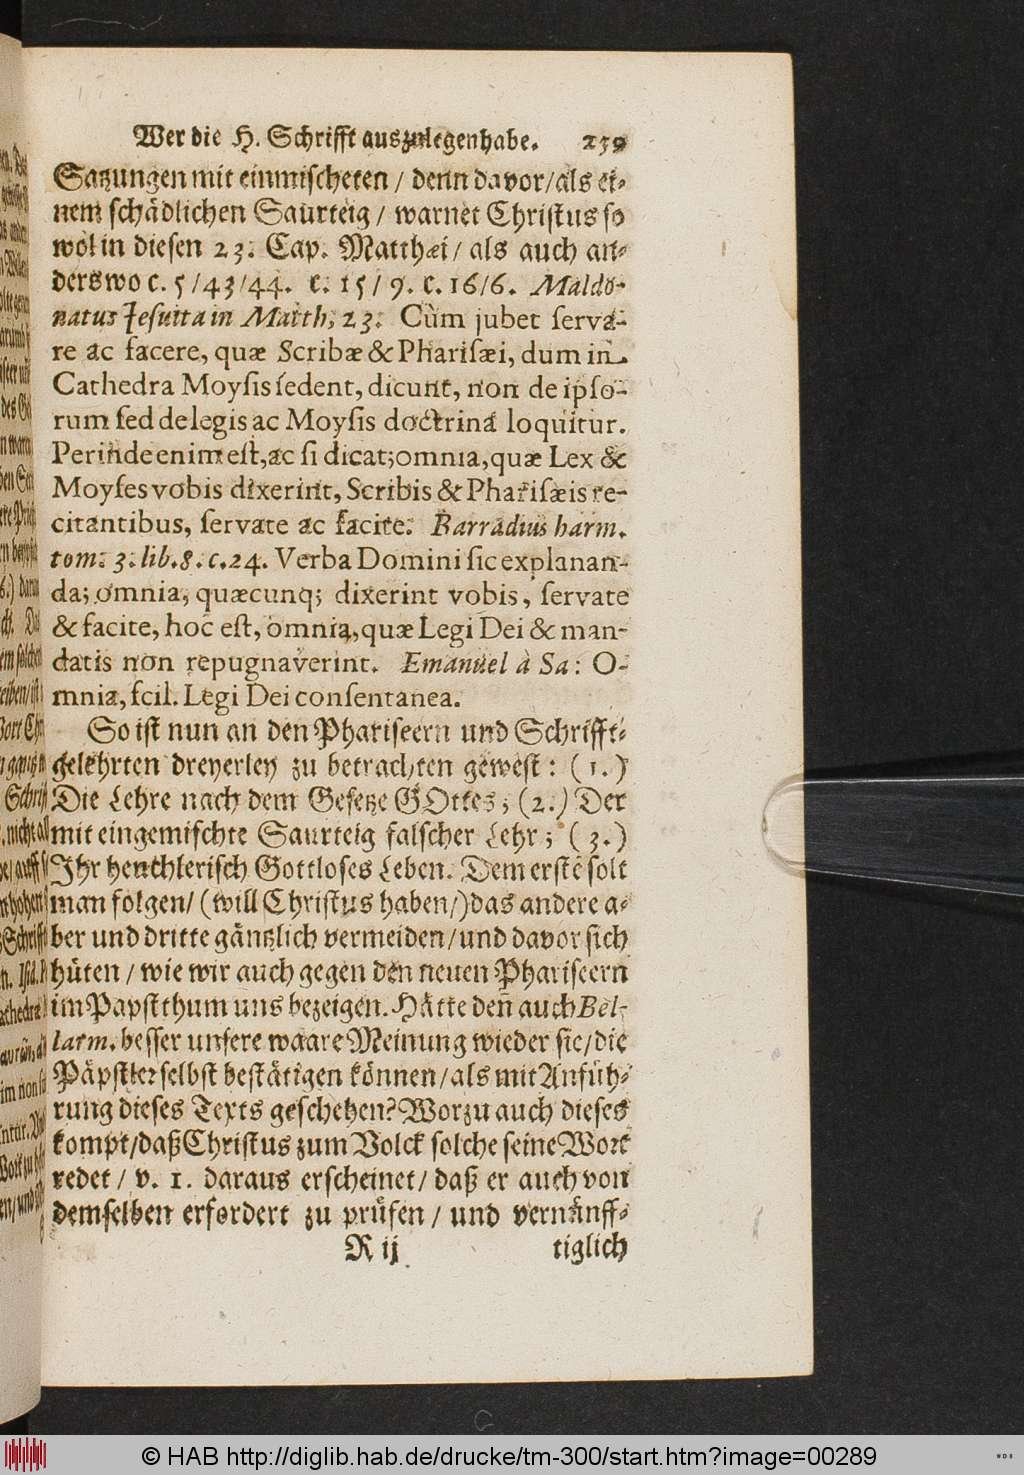 Wer die H. Schrifft auszulegen habe. 259
Satzungen mit einmischeten / denn davor / als ei-
nem schädlichen Saurteig / warnet Christus so
wol in diesen 23. Cap. Matthæi / als auch an-
derswo c. 5 / 43 / 44. c. 15 / 9. c. 16 / 6. Maldo-
natus Jesuita in Matth. 23. Cùm jubet serva-
re ac facere, quæ Scribæ & Pharisæi, dum in
Cathedra Moysis sedent, dicunt, non de ipso-
rum sed de legis ac Moysis doctrinâ loquitur.
Perinde enim est, ac si dicat; omnia, quæ Lex &
Moyses vobis dixerint, Scribis & Pharisæis re-
citantibus, servate ac facite. Barradius harm.
tom. 3. lib. 8. c. 24. Verba Domini sic explanan-
da; omnia, quæcunq; dixerint vobis, servate
& facite, hoc est, omnia, quæ Legi Dei & man-
datis non repugnaverint. Emanuel à Sa: O-
mnia, scil. Legi Dei consentanea.
So ist nun an den Phariseern und Schrifft-
gelehrten dreyerley zu betrachten gewest: (1.)
Die Lehre nach dem Gesetze GOttes; (2.) Der
mit eingemischte Saurteig falscher Lehr; (3.)
Ihr heuchlerisch Gottloses Leben. Dem erstē solt
man folgen / (will Christus haben /) das andere a-
ber und dritte gäntzlich vermeiden / und davor sich
hüten / wie wir auch gegen den neuen Phariseern
im Papstthum uns bezeigen. Hätte den̄ auch Bel-
larm. besser unsere waare Meinung wieder sie / die
Päpstler selbst bestätigen können / als mit Anfüh-
rung dieses Texts geschehen? Worzu auch dieses
kompt / daß Christus zum Volck solche seine Wort
redet / v. 1. daraus erscheinet / daß er auch von
demselben erfordert zu prüfen / und vernünff-
R ij tiglich
© HAB http://diglib.hab.de/drucke/tm-300/start.htm?image=00289